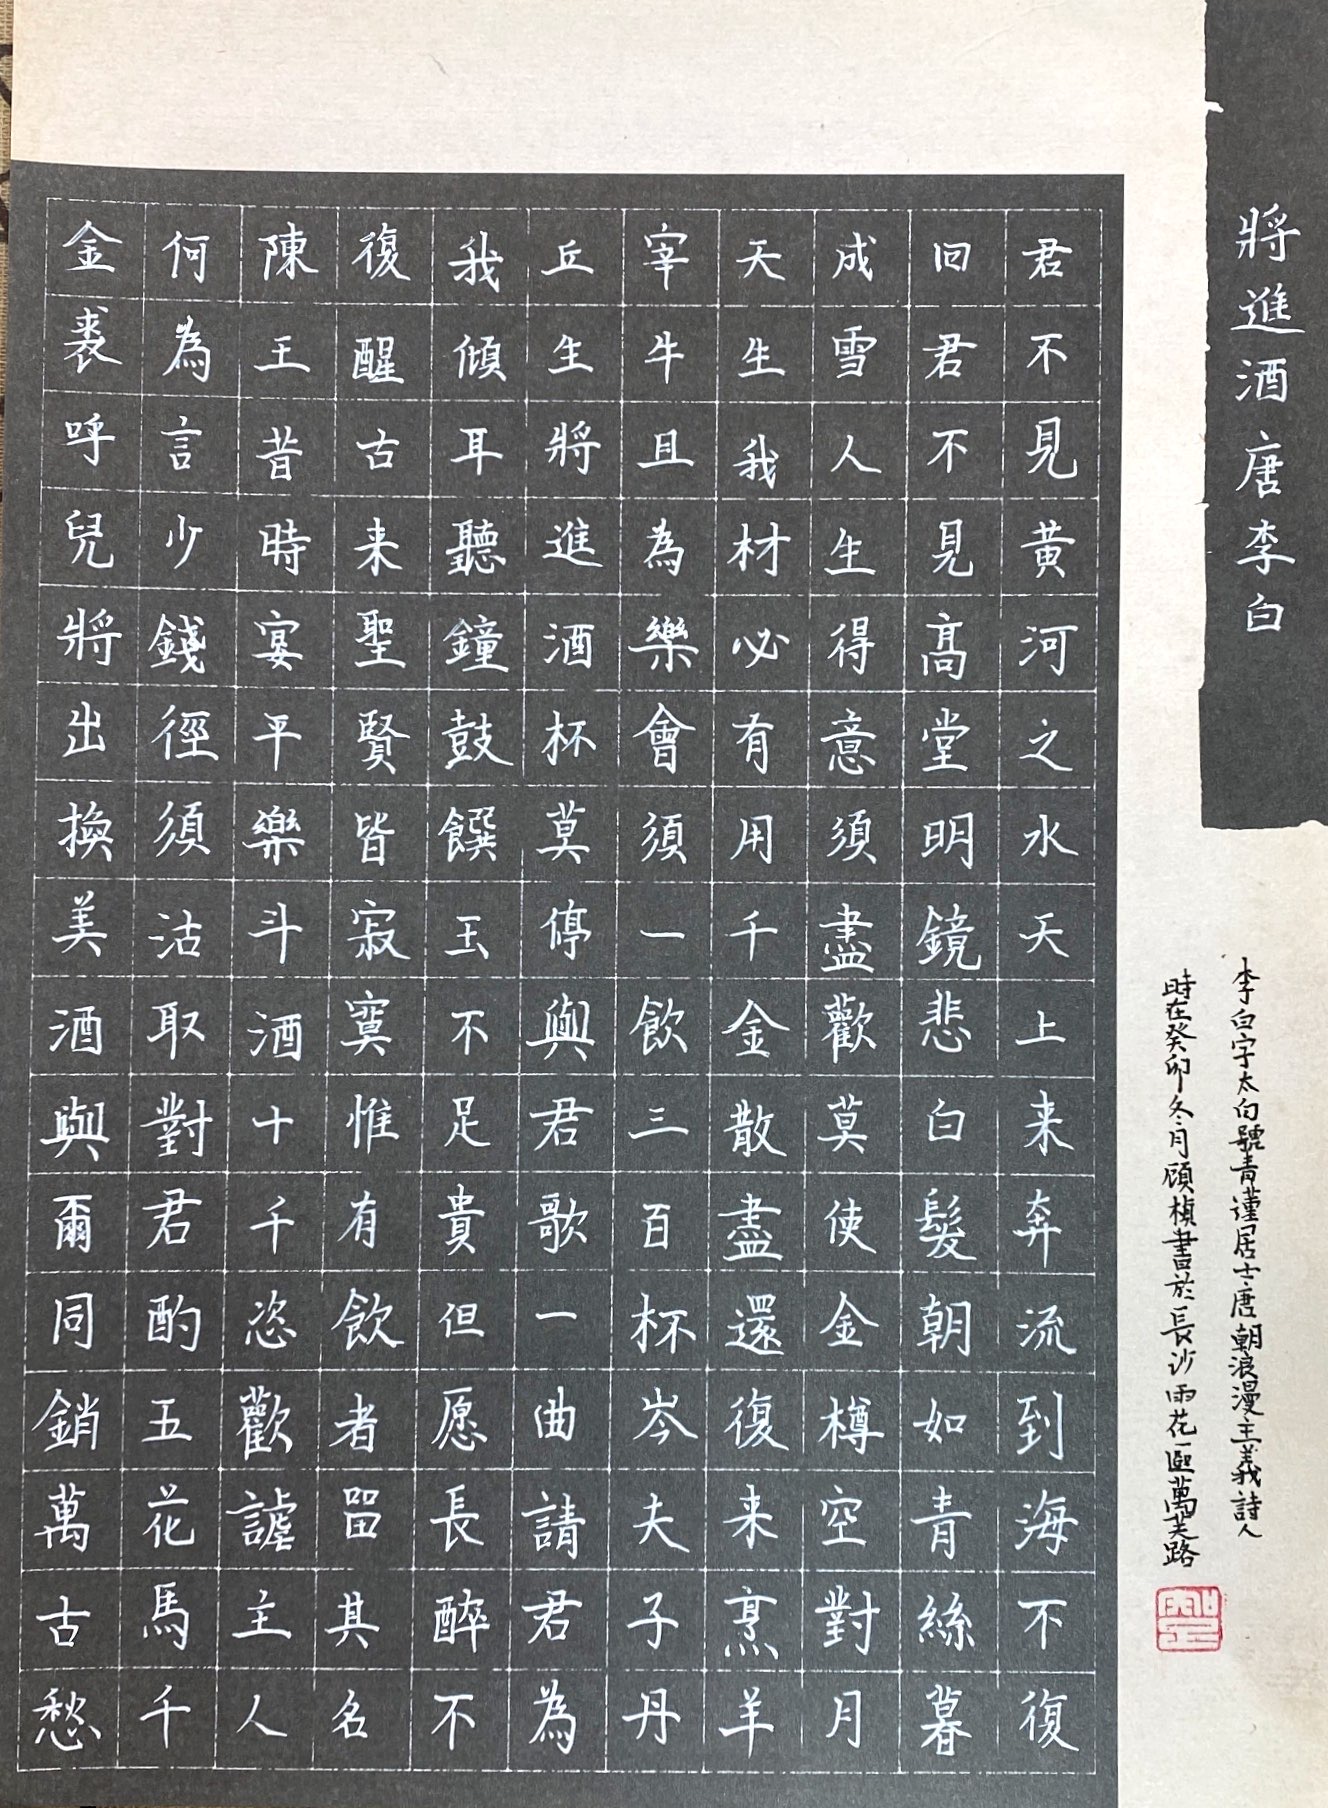 將進酒唐李白
君不見黃河之水天上来奔流到海不復
回君不見高堂明鏡悲白髮朝如青絲暮
成雪人生得意須盡歡莫使金樽空對月
天生我材必有用千金散盡還復来烹羊
宰牛且為樂會須一飲三百杯岑夫子丹
丘生將進酒杯莫停與君歌一曲請君為
我傾耳聽鐘鼓饌玉不足貴但愿長醉不
復醒古来聖賢皆寂寞惟有飲者留其名
陳王昔時宴平樂斗酒十千恣歡謔主人
何為言少錢徑須沽取對君酌五花馬千
金裘呼兒將出換美酒與爾同銷萬古愁
李白字太白號青蓮居士唐朝浪漫主義詩人
時在癸卯冬月顧楨書於長沙雨花區萬芙路